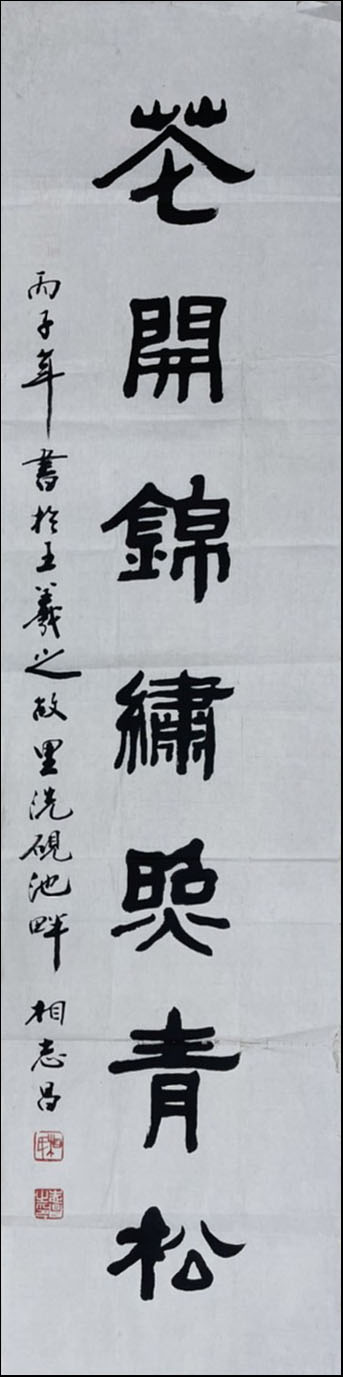 花開錦繡照青松
丙子年書於王羲之故里洗硯池畔 相志昌